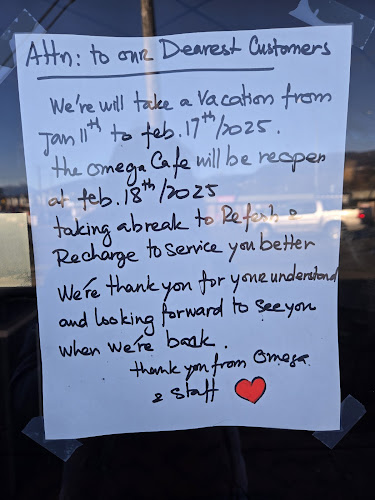 Attn: to our Dearest Customers
We're will take a Vacation from
Jan 11th to feb. 17th/2025.
the omega Cafe will be reopen
at feb. 18th/2025
taking a break to Refersh &
Recharge to service you better
We're thank you for your understand
and looking forward to see you
when we're back.
thank you from Omega
& staff